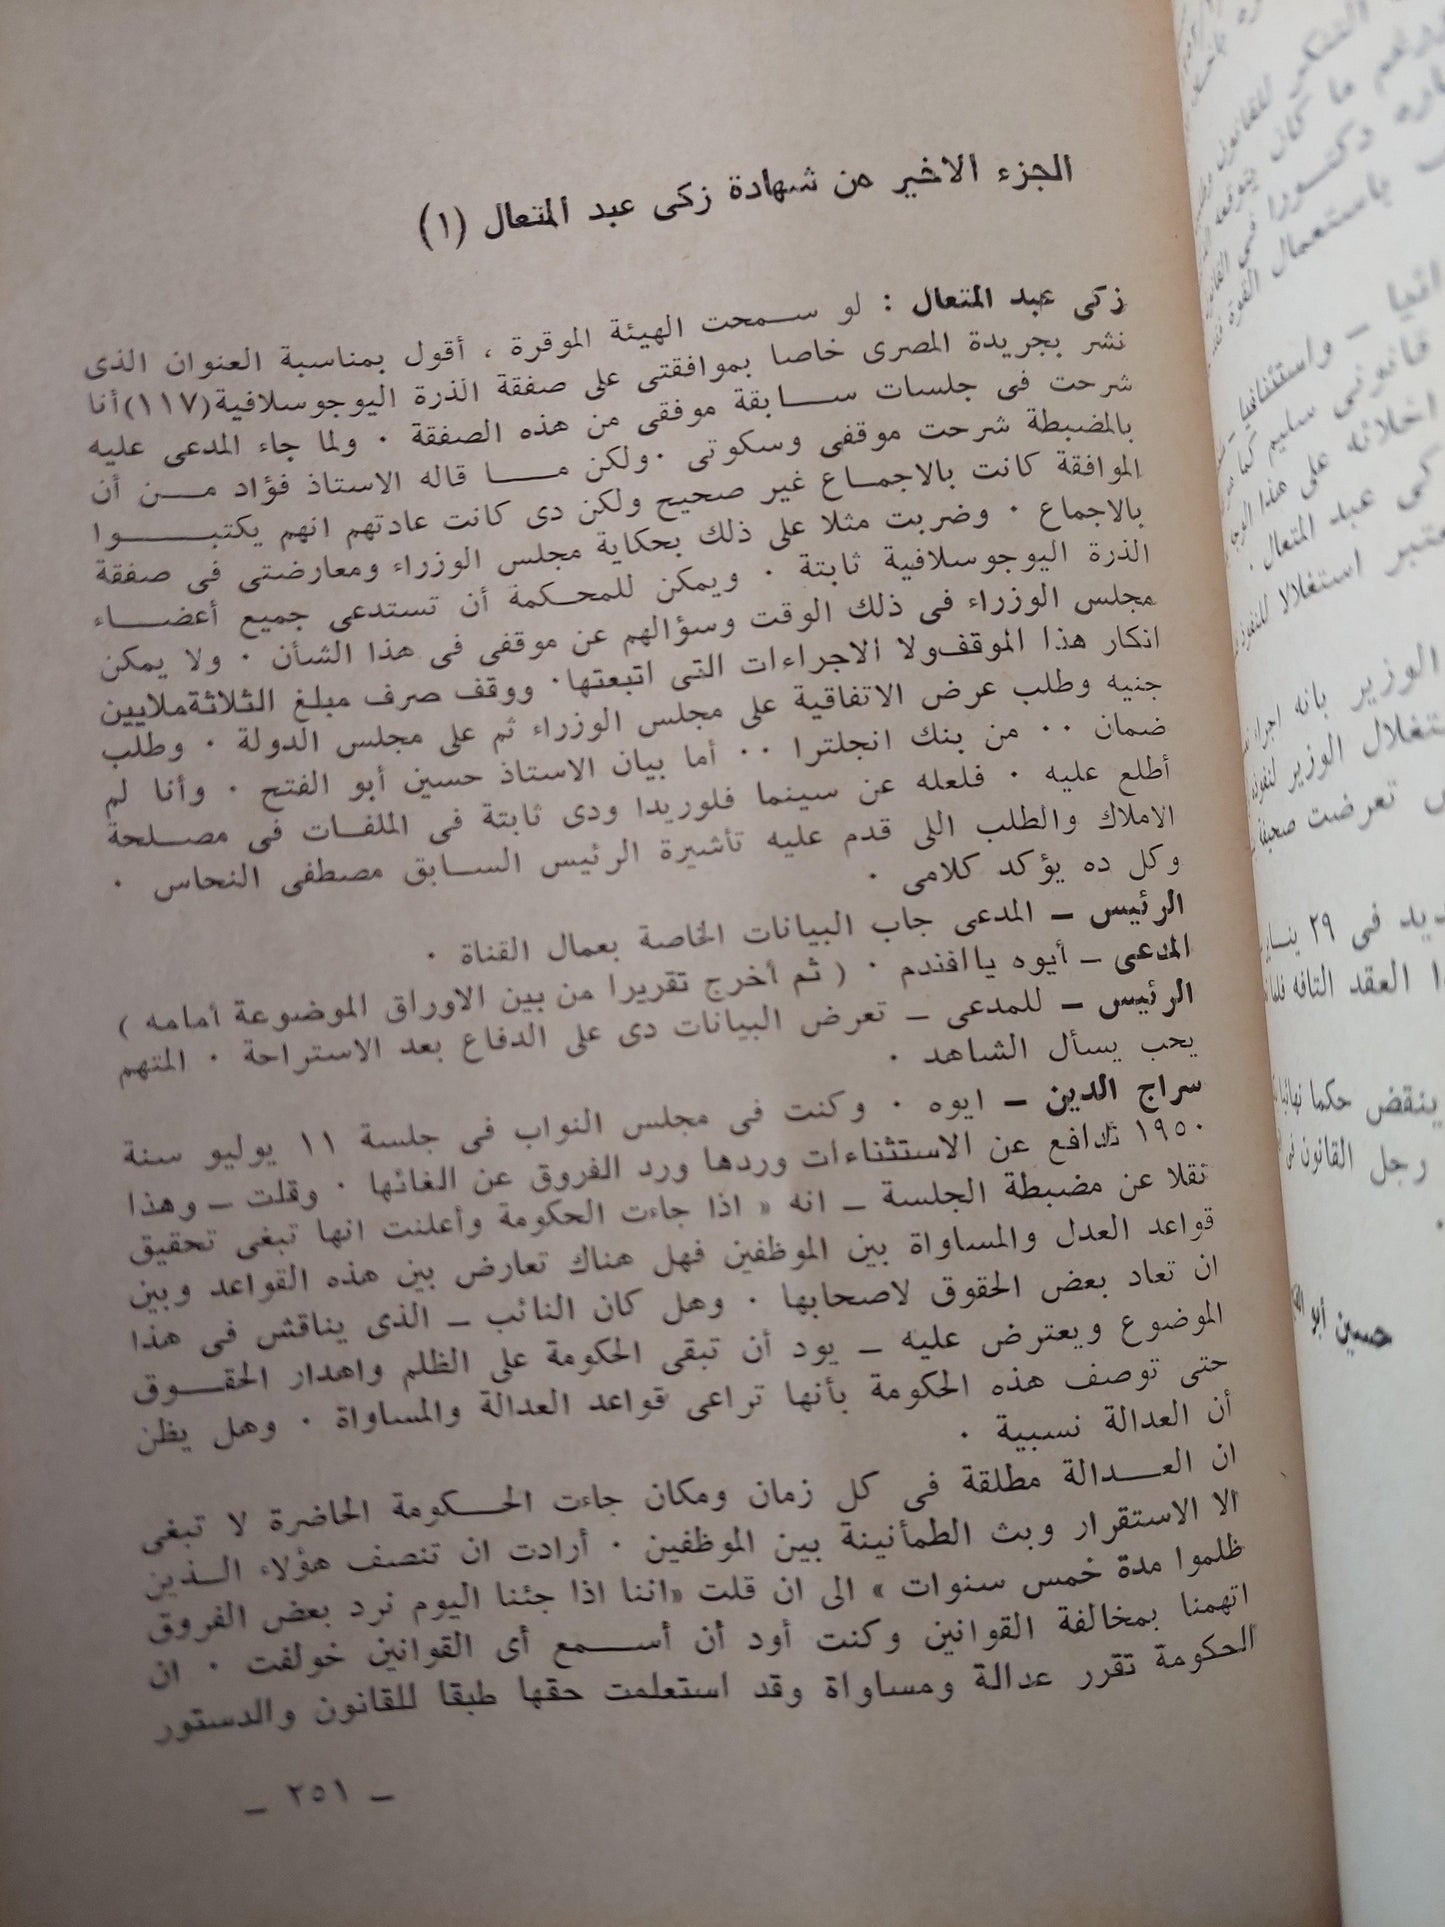 الجزء الاخير من شهادة زكى عبد المتعال (١)
زكى عبد المتعال : لو سمحت الهيئة الموقرة ، أقول بمناسبة العنوان الذى
نشر بجريدة المصرى خاصا بموافقتى على صفقة الذرة اليوجوسلافية(١١٧)أنا
شرحت فى جلسات سابقة موفقى من هذه الصفقة . ولما جاء المدعى عليه
بالمضبطة شرحت موقفى وسكوتى .ولكن ما قاله الاستاذ فؤاد من أن
الموافقة كانت بالاجماع غير صحيح ولكن دى كانت عادتهم انهم يكتبوا
بالاجماع . وضربت مثلا على ذلك بحكاية مجلس الوزراء ومعارضتى فى صفقة
الذرة اليوجوسلافية ثابتة . ويمكن للمحكمة أن تستدعى جميع أعضاء
مجلس الوزراء فى ذلك الوقت وسؤالهم عن موقفى فى هذا الشأن . ولا يمكن
انكار هذا الموقف ولا الاجراءات التى اتبعتها. ووقف صرف مبلغ الثلاثة ملايين
جنيه وطلب عرض الاتفاقية على مجلس الوزراء ثم على مجلس الدولة . وطلب
ضمان .. من بنك انجلترا .. أما بيان الاستاذ حسين أبو الفتح . وأنا لم
أطلع عليه . فلعله عن سينما فلوريدا ودى ثابتة فى الملفات فى مصلحة
الاملاك والطلب اللى قدم عليه تأشيرة الرئيس السابق مصطفى النحاس .
وكل ده يؤكد كلامى .
الرئيس – المدعى جاب البيانات الخاصة بعمال القناة .
المدعى – أيوه ياافندم . ( ثم أخرج تقريرا من بين الاوراق الموضوعة أمامه )
الرئيس – للمدعى – تعرض البيانات دى على الدفاع بعد الاستراحة . المتهم
يحب يسأل الشاهد .
سراج الدين – ايوه . وكنت فى مجلس النواب فى جلسة ١١ يوليو سنة
١٩٥٠ تدافع عن الاستثناءات وردها ورد الفروق عن الغائها . وقلت – وهذا
نقلا عن مضبطة الجلسة – انه « اذا جاءت الحكومة وأعلنت انها تبغى تحقيق
قواعد العدل والمساواة بين الموظفين فهل هناك تعارض بين هذه القواعد وبين
ان تعاد بعض الحقوق لاصحابها . وهل كان النائب – الذى يناقش فى هذا
الموضوع ويعترض عليه – يود أن تبقى الحكومة على الظلم واهدار الحقوق
حتى توصف هذه الحكومة بأنها تراعى قواعد العدالة والمساواة . وهل يظن
أن العدالة نسبية .
ان العدالة مطلقة فى كل زمان ومكان جاءت الحكومة الحاضرة لا تبغى
الا الاستقرار وبث الطمأنينة بين الموظفين . أرادت ان تنصف هؤلاء الذين
ظلموا مدة خمس سنوات » الى ان قلت «اننا اذا جئنا اليوم نرد بعض الفروق
اتهمنا بمخالفة القوانين وكنت أود أن أسمع أى القوانين خولفت . ان
الحكومة تقرر عدالة ومساواة وقد استعلمت حقها طبقا للقانون والدستور
– ٢٥١ –
باستعمال القوة
قانونى سليم كما
اخلاته على هذا
كى عبد المتعال .
عتبر استغلالا للنفوذ
الوزير بانه اجراء
ستغلال الوزير لنفوذ
تعرضت صحيفة
ديد فى ٢٩ يناير
ا العقد التافه
ينقض حكما نهائيا
رجل القانون فى
حسين أبو